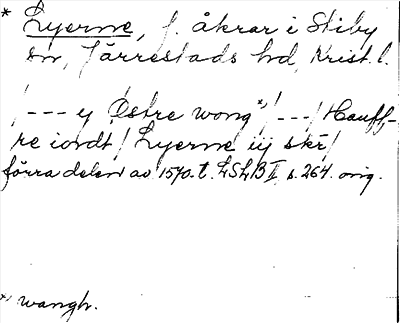 * Lyerne, f. åkrar i Stiby
sn, Järrestads hd, Krist. l.
/--- y Østre wong*) /---/ Hauff-
re iordt / Lyerne iij skr /
förra delen av 1570.t. LSLB II, s. 264. orig.
*) wangh.